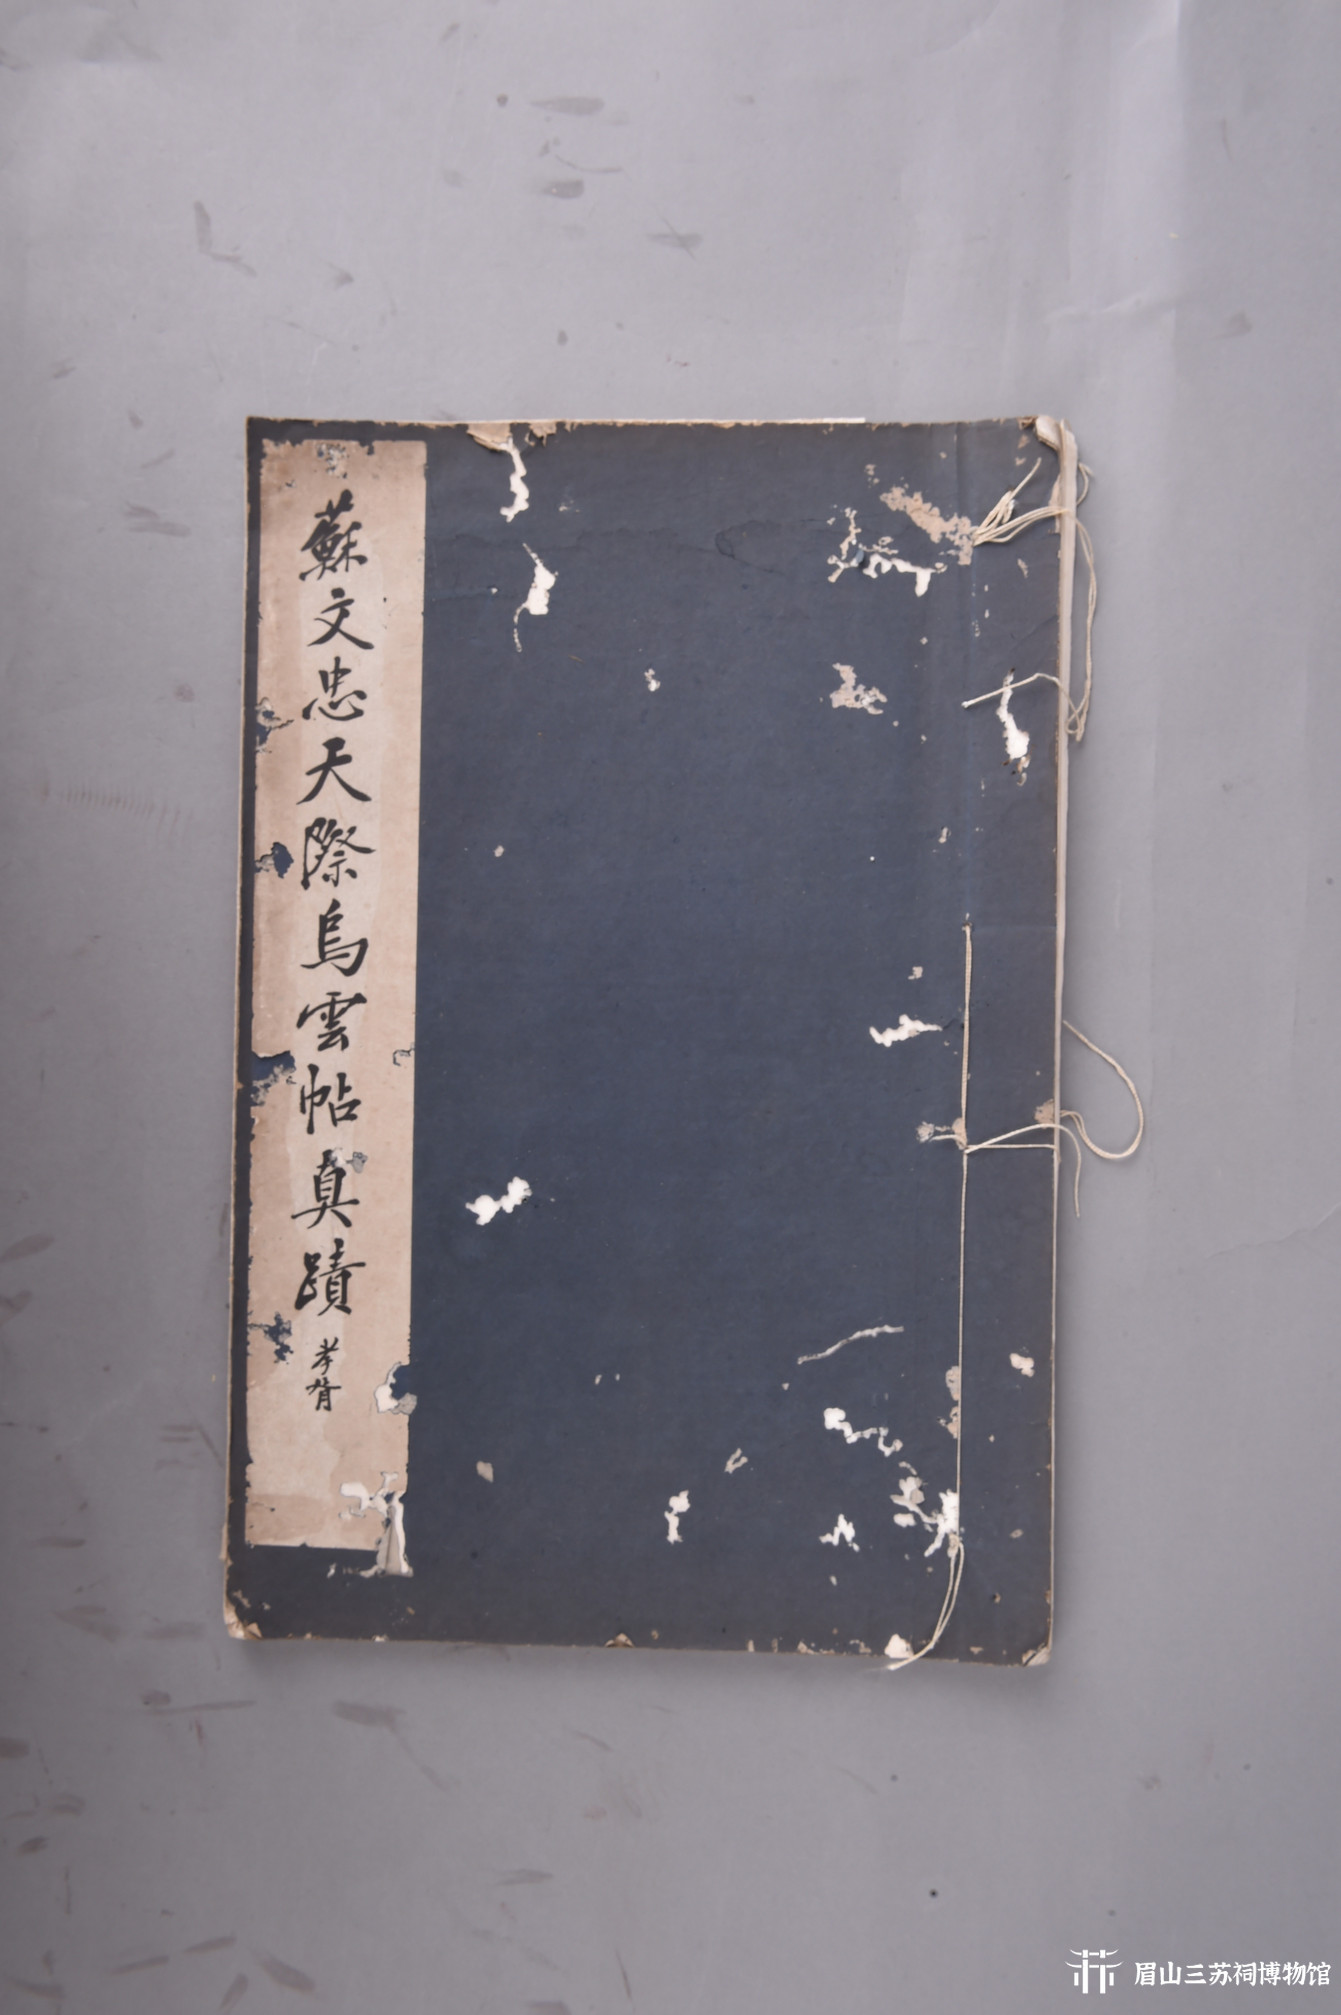 蘇文忠天際烏雲帖真蹟
孝胥
眉山三苏祠博物馆